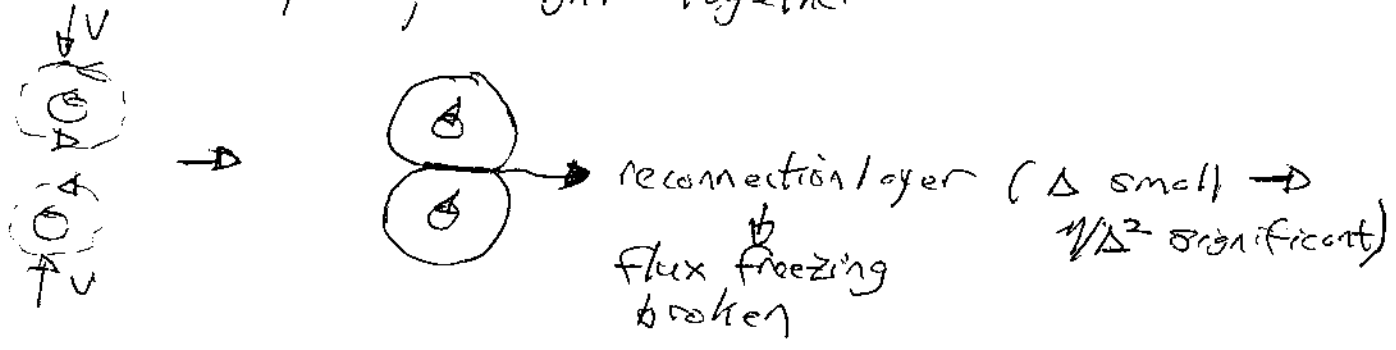 together
V
→
V
→ reconnection layer (Δ small →
η/Δ² significant)
↓
flux freezing
broken